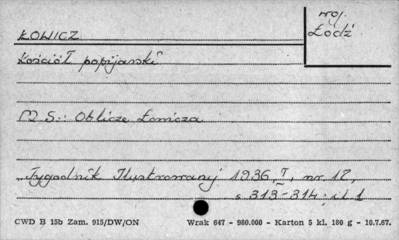 woj.
ŁOWICZ Łódź
Kościół popijarski
M S: Oblicze Łowicza
"Tygodnik Ilustrowany 1936, I, nr. 17,
s 313-314; il 1
CWD B 15b Zam. 915/DW/ON Wrak 647 - 980.000 - Karton 5 kl. 180 g - 10.7.67.